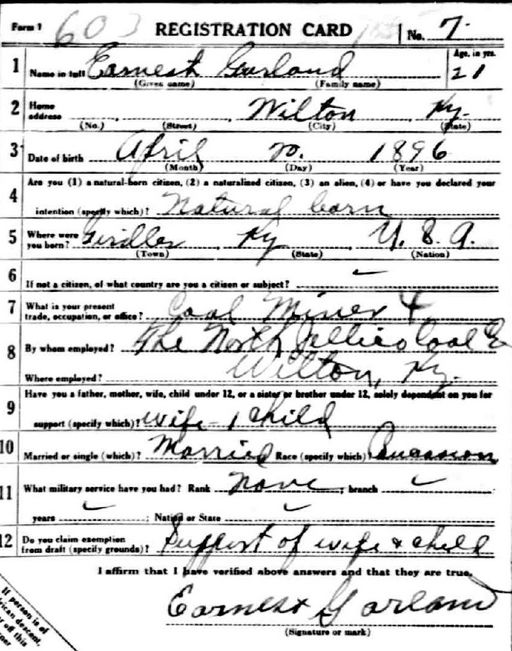 Form 1 603 REGISTRATION CARD No. 7
1 Name in full Earnest Garland Age, in yrs. 21
(Given name) (Family name)
2 Home address Wilton Ky.
(No.) (Street) (City) (State)
3 Date of birth April 20. 1896
(Month) (Day) (Year)
4 Are you (1) a natural-born citizen, (2) a naturalized citizen, (3) an alien, (4) or have you declared your
intention (specify which)? Natural born
5 Where were you born? Girdler Ky U.S.A.
(Town) (State) (Nation)
6 If not a citizen, of what country are you a citizen or subject?
7 What is your present trade, occupation, or office? Coal Miner
8 By whom employed? The North Jellico Coal
Where employed? Wilton, Ky.
9 Have you a father, mother, wife, child under 12, or a sister or brother under 12, solely dependent on you for
support (specify which)? wife - 1 child
10 Married or single (which)? Married Race (specify which)? Caucasion
11 What military service have you had? Rank None ; branch
years ; Nation or State
12 Do you claim exemption from draft (specify grounds)? Support of wife & child
I affirm that I have verified above answers and that they are true.
Earnest Garland
(Signature or mark)
If person is of